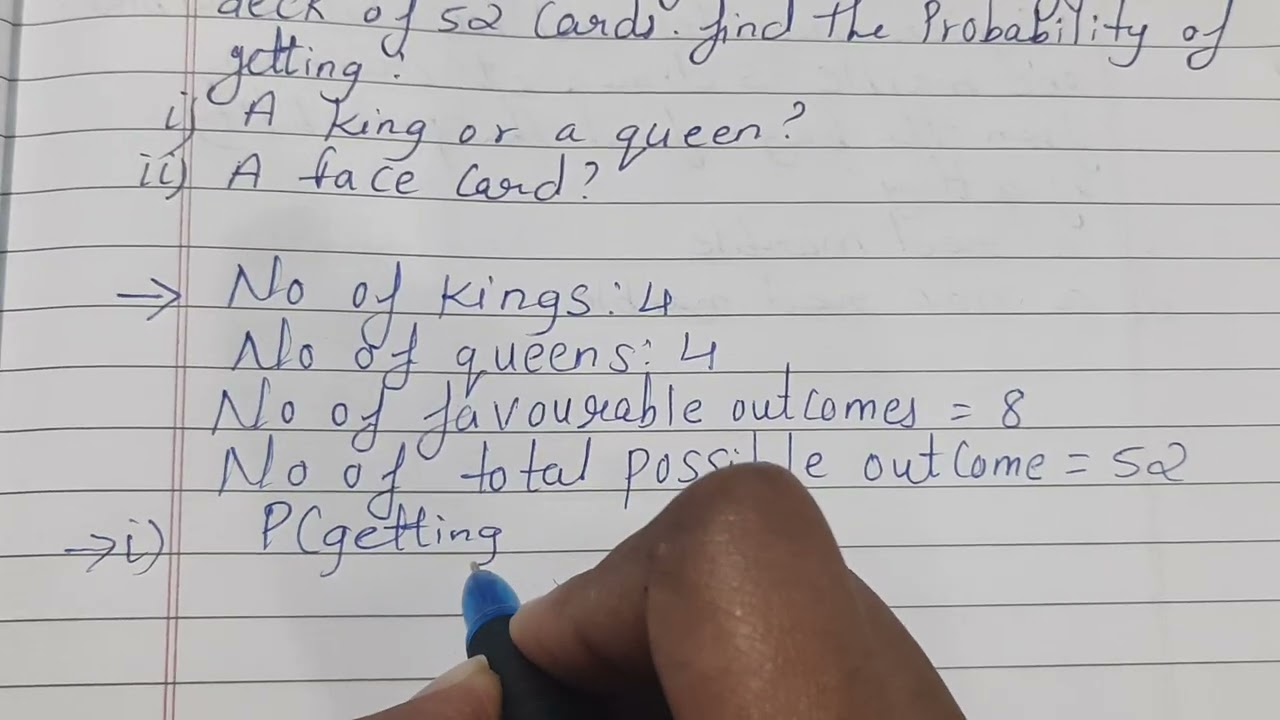 deck of 52 Cards. find the Probability of
getting?
i) A king or a queen?
ii) A face Card?
→ No of kings: 4
No of queens: 4
No of favourable outcomes = 8
No of total possible outcome = 52
→i) P(getting